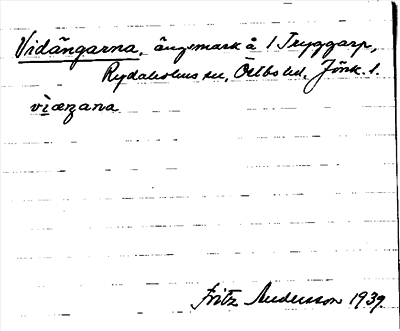 Vidängarna, ängsmark å 1 Tryggarp,
Rydaholms sn, Östbo hd, Jönk. l.
viæŋana
Fritz Andersson 1939.